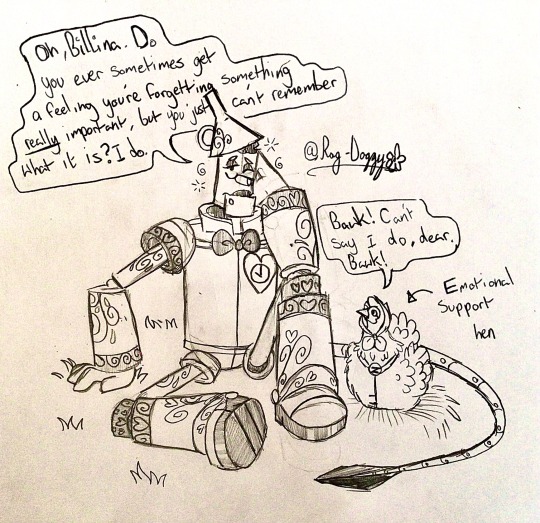 Oh, Billina. Do
you ever sometimes get
a feeling you're forgetting something
really important, but you just can't remember
what it is? I do.
@Rag-Doggy
Bawk! Can't
say I do, dear.
Bawk!
Emotional
Support
hen